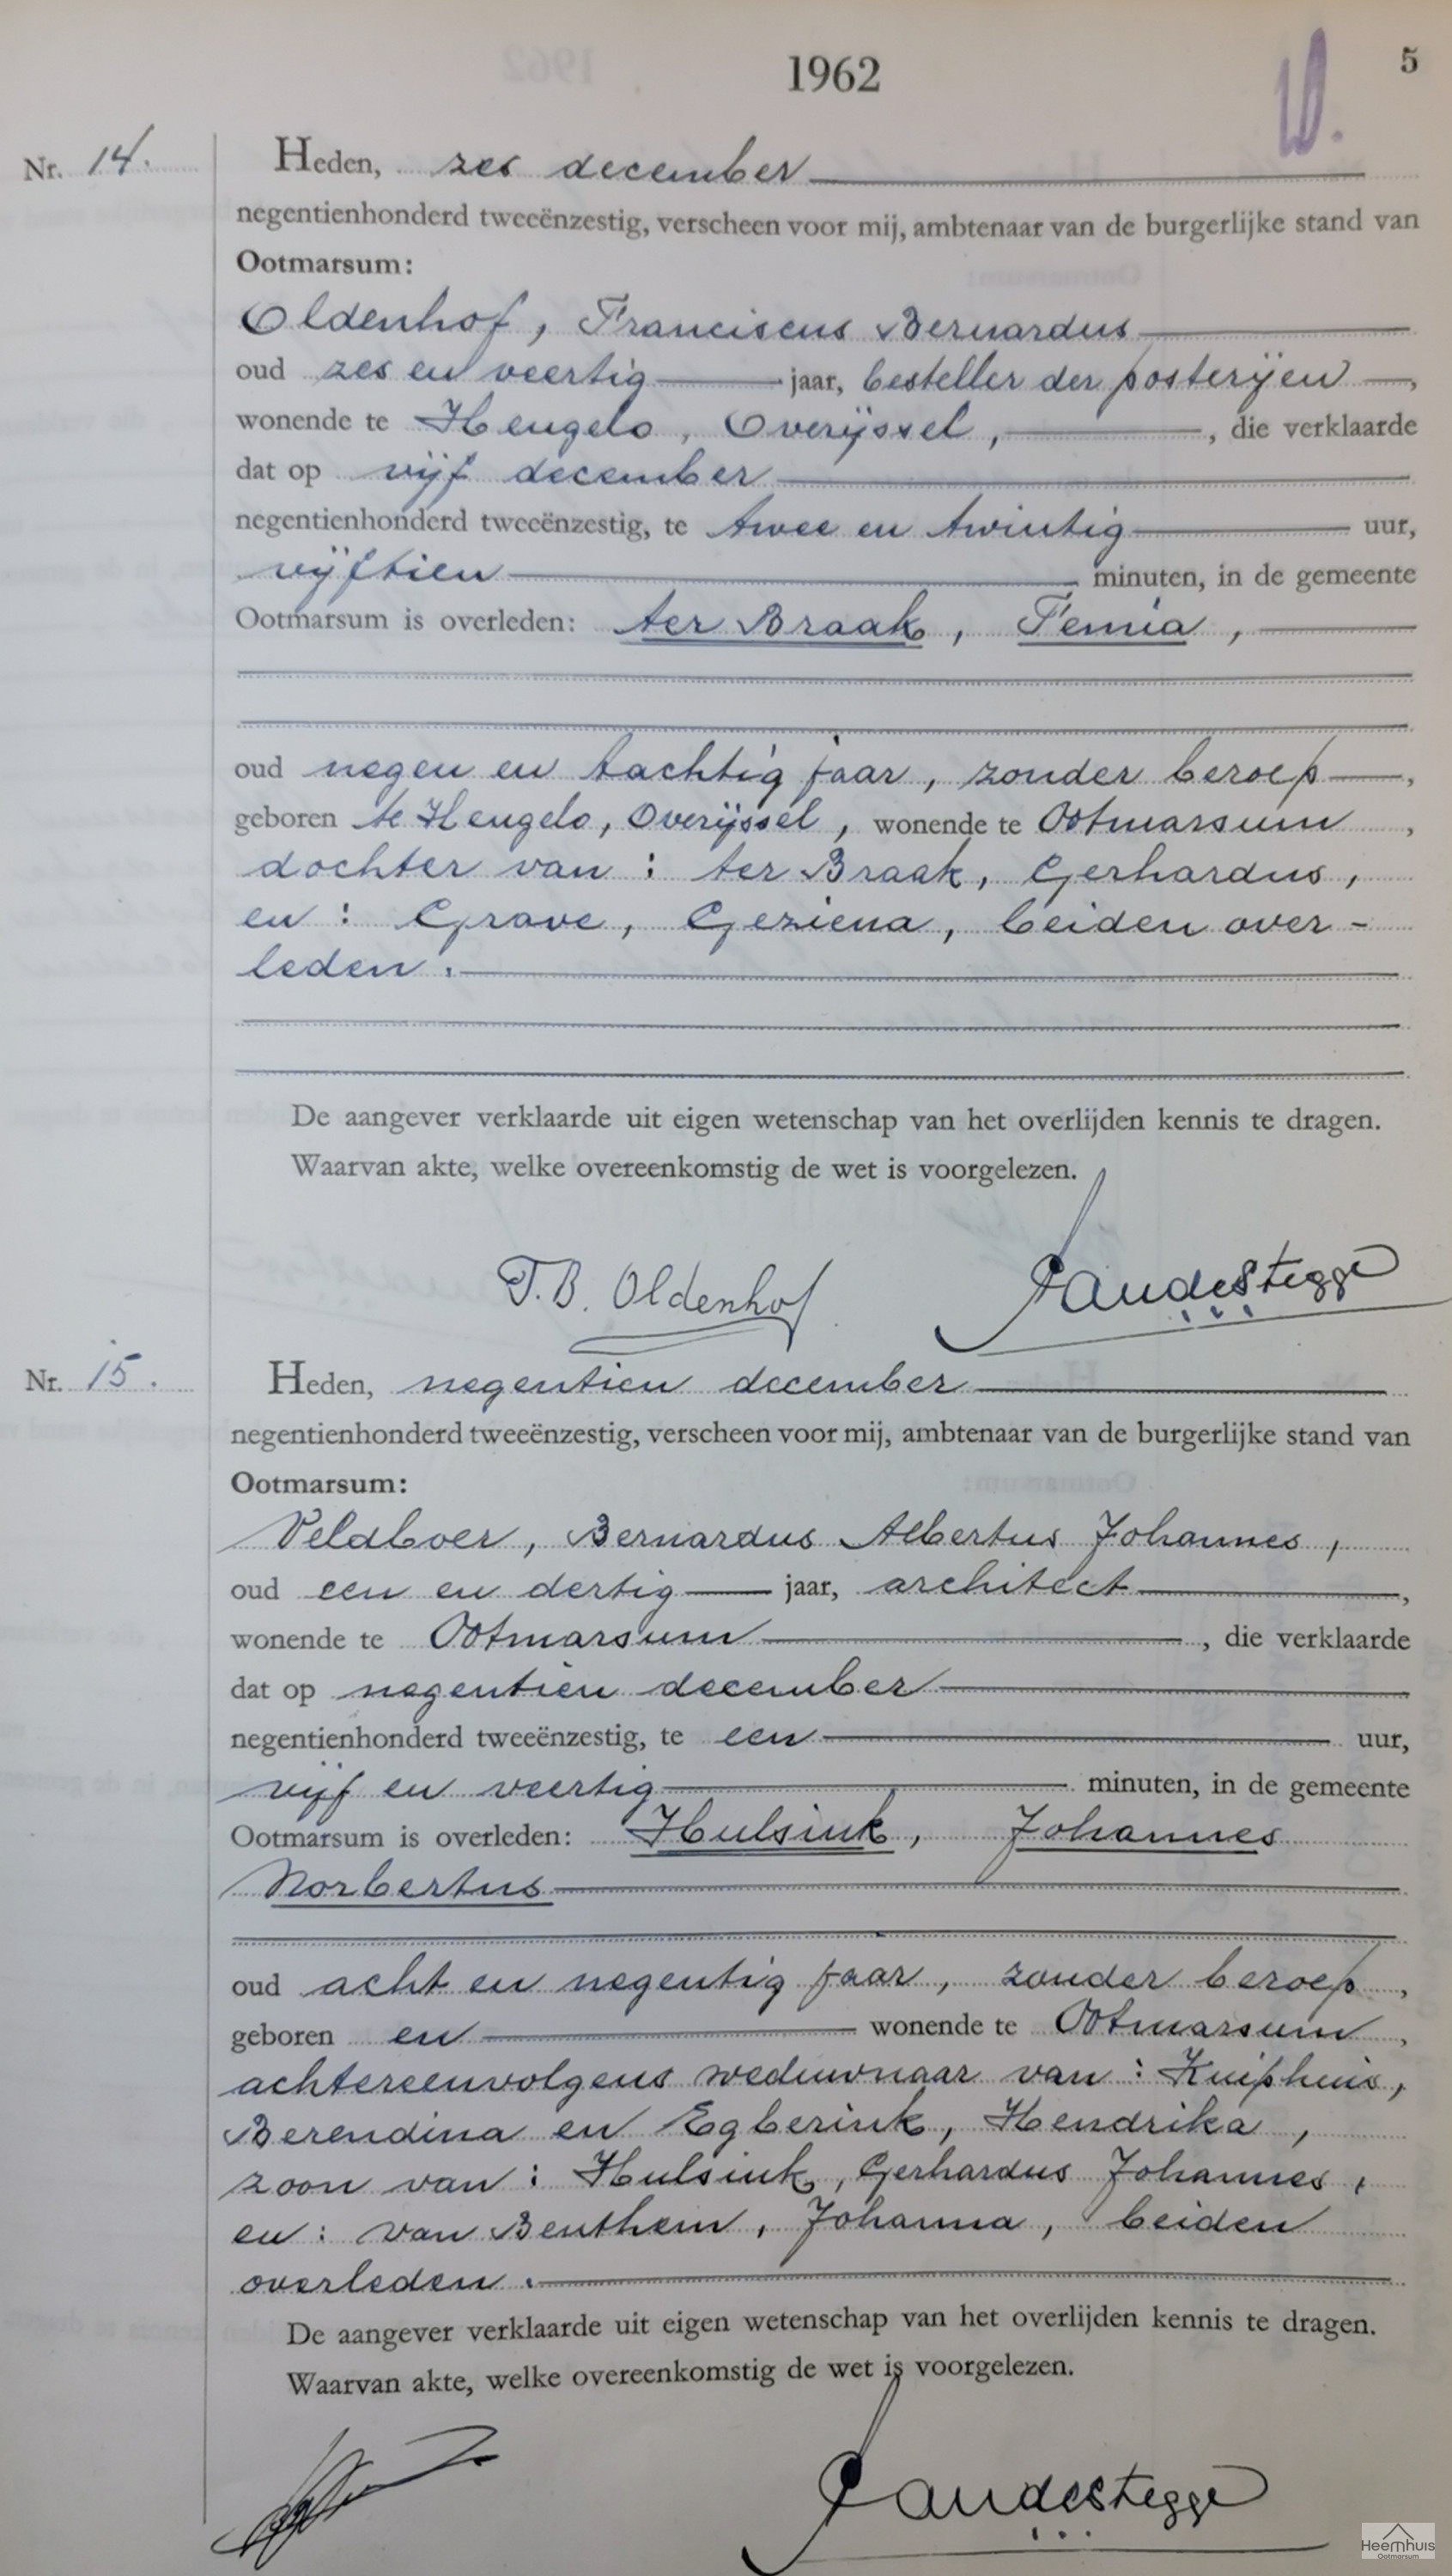 1962
5
Nr. 14. Heden, zes december
negentienhonderd tweeënzestig, verscheen voor mij, ambtenaar van de burgerlijke stand van
Ootmarsum:
Oldenhof, Franciscus Bernardus
oud zes en veertig jaar, besteller der posterijen,
wonende te Hengelo, Overijssel, , die verklaarde
dat op vijf december
negentienhonderd tweeënzestig, te twee en twintig uur,
vijftien minuten, in de gemeente
Ootmarsum is overleden: ter Braak, Femia,
oud negen en tachtig jaar, zonder beroep,
geboren te Hengelo, Overijssel, wonende te Ootmarsum,
dochter van: ter Braak, Gerhardus,
en: Grave, Geziena, beiden over-
leden.
De aangever verklaarde uit eigen wetenschap van het overlijden kennis te dragen.
Waarvan akte, welke overeenkomstig de wet is voorgelezen.
F.B. Oldenhof
Nr. 15. Heden, negentien december
negentienhonderd tweeënzestig, verscheen voor mij, ambtenaar van de burgerlijke stand van
Ootmarsum:
Veldboer, Bernardus Albertus Johannes,
oud een en dertig jaar, architect,
wonende te Ootmarsum, die verklaarde
dat op negentien december
negentienhonderd tweeënzestig, te een uur,
vijf en veertig minuten, in de gemeente
Ootmarsum is overleden: Hulsink, Johannes
Norbertus
oud acht en negentig jaar, zonder beroep,
geboren en wonende te Ootmarsum,
achtereenvolgens weduwnaar van: Kuiphuis,
Berendina en Egberink, Hendrika,
zoon van: Hulsink, Gerhardus Johannes,
en: van Benthem, Johanna, beiden
overleden.
De aangever verklaarde uit eigen wetenschap van het overlijden kennis te dragen.
Waarvan akte, welke overeenkomstig de wet is voorgelezen.
Heemhuis
Ootmarsum